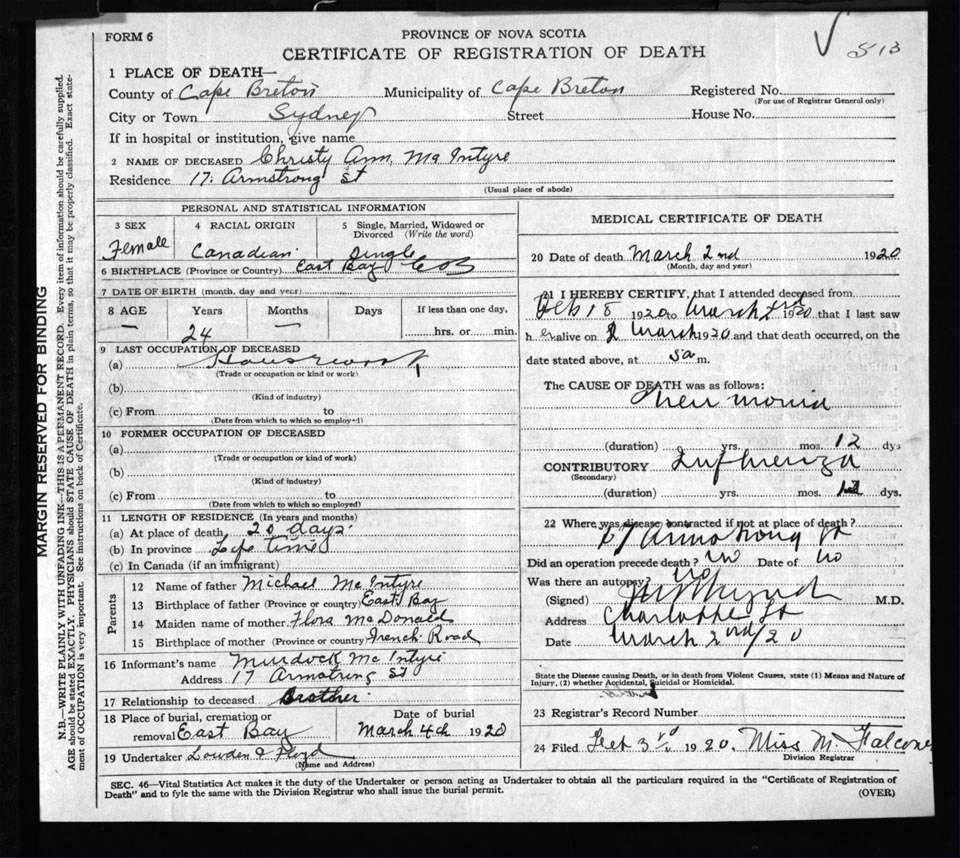 FORM 6
PROVINCE OF NOVA SCOTIA
CERTIFICATE OF REGISTRATION OF DEATH
513
1 PLACE OF DEATH—
County of Cape Breton Municipality of Cape Breton Registered No.
(For use of Registrar General only)
City or Town Sydney Street House No.
If in hospital or institution, give name
2 NAME OF DECEASED Christy Ann Mc Intyre
Residence 17 Armstrong St
(Usual place of abode)
PERSONAL AND STATISTICAL INFORMATION
3 SEX 4 RACIAL ORIGIN 5 Single, Married, Widowed or
Divorced (Write the word)
Female Canadian Single
6 BIRTHPLACE (Province or Country) East Bay C B
7 DATE OF BIRTH (month, day and year)
8 AGE Years Months Days If less than one day,
— 24 — hrs. or min.
9 LAST OCCUPATION OF DECEASED
(a) Housework
(Trade or occupation or kind or work)
(b)
(Kind of industry)
(c) From to
(Date from which to which so employed)
10 FORMER OCCUPATION OF DECEASED
(a)
(Trade or occupation or kind of work)
(b)
(Kind of industry)
(c) From to
(Date from which to which so employed)
11 LENGTH OF RESIDENCE (In years and months)
(a) At place of death 20 days
(b) In province Life time
(c) In Canada (if an immigrant)
Parents
12 Name of father Michael Mc Intyre
13 Birthplace of father (Province or country) East Bay
14 Maiden name of mother Flora McDonald
15 Birthplace of mother (Province or country) French Road
16 Informant's name Murdock Mc Intyre
Address 17 Armstrong St
17 Relationship to deceased Brother
18 Place of burial, cremation or Date of burial
removal East Bay March 4th 1920
19 Undertaker Lowden & Floyd
(Name and Address)
MEDICAL CERTIFICATE OF DEATH
20 Date of death March 2nd 1920
(Month, day and year)
21 I HEREBY CERTIFY, that I attended deceased from
Feb 18 1920 to March 2nd 1920 that I last saw
h er alive on 2 March 1920 and that death occurred, on the
date stated above, at 5 a m.
The CAUSE OF DEATH was as follows:
Pneumonia
(duration) yrs. mos. 12 dys
CONTRIBUTORY Influenza
(Secondary)
(duration) yrs. mos. 12 dys.
22 Where was disease contracted if not at place of death?
17 Armstrong St
Did an operation precede death? no Date of no
Was there an autopsy? no
(Signed) M.D.
Address Charlotte St
Date March 2nd/20
State the Disease causing Death, or in death from Violent Causes, state (1) Means and Nature of
Injury, (2) whether Accidental, Suicidal or Homicidal.
23 Registrar's Record Number
24 Filed Feb 3rd 1920. Miss M. Falconer
Division Registrar
SEC. 46—Vital Statistics Act makes it the duty of the Undertaker or person acting as Undertaker to obtain all the particulars required in the "Certificate of Registration of
Death" and to fyle the same with the Division Registrar who shall issue the burial permit.
(OVER)
MARGIN RESERVED FOR BINDING
N.B.—WRITE PLAINLY WITH UNFADING INK—THIS IS A PERMANENT RECORD. Every item of information should be carefully supplied.
AGE should be stated EXACTLY. PHYSICIANS should STATE CAUSE OF DEATH in plain terms, so that it may be properly classified. Exact state-
ment of OCCUPATION is very important. See instructions on back of Certificate.